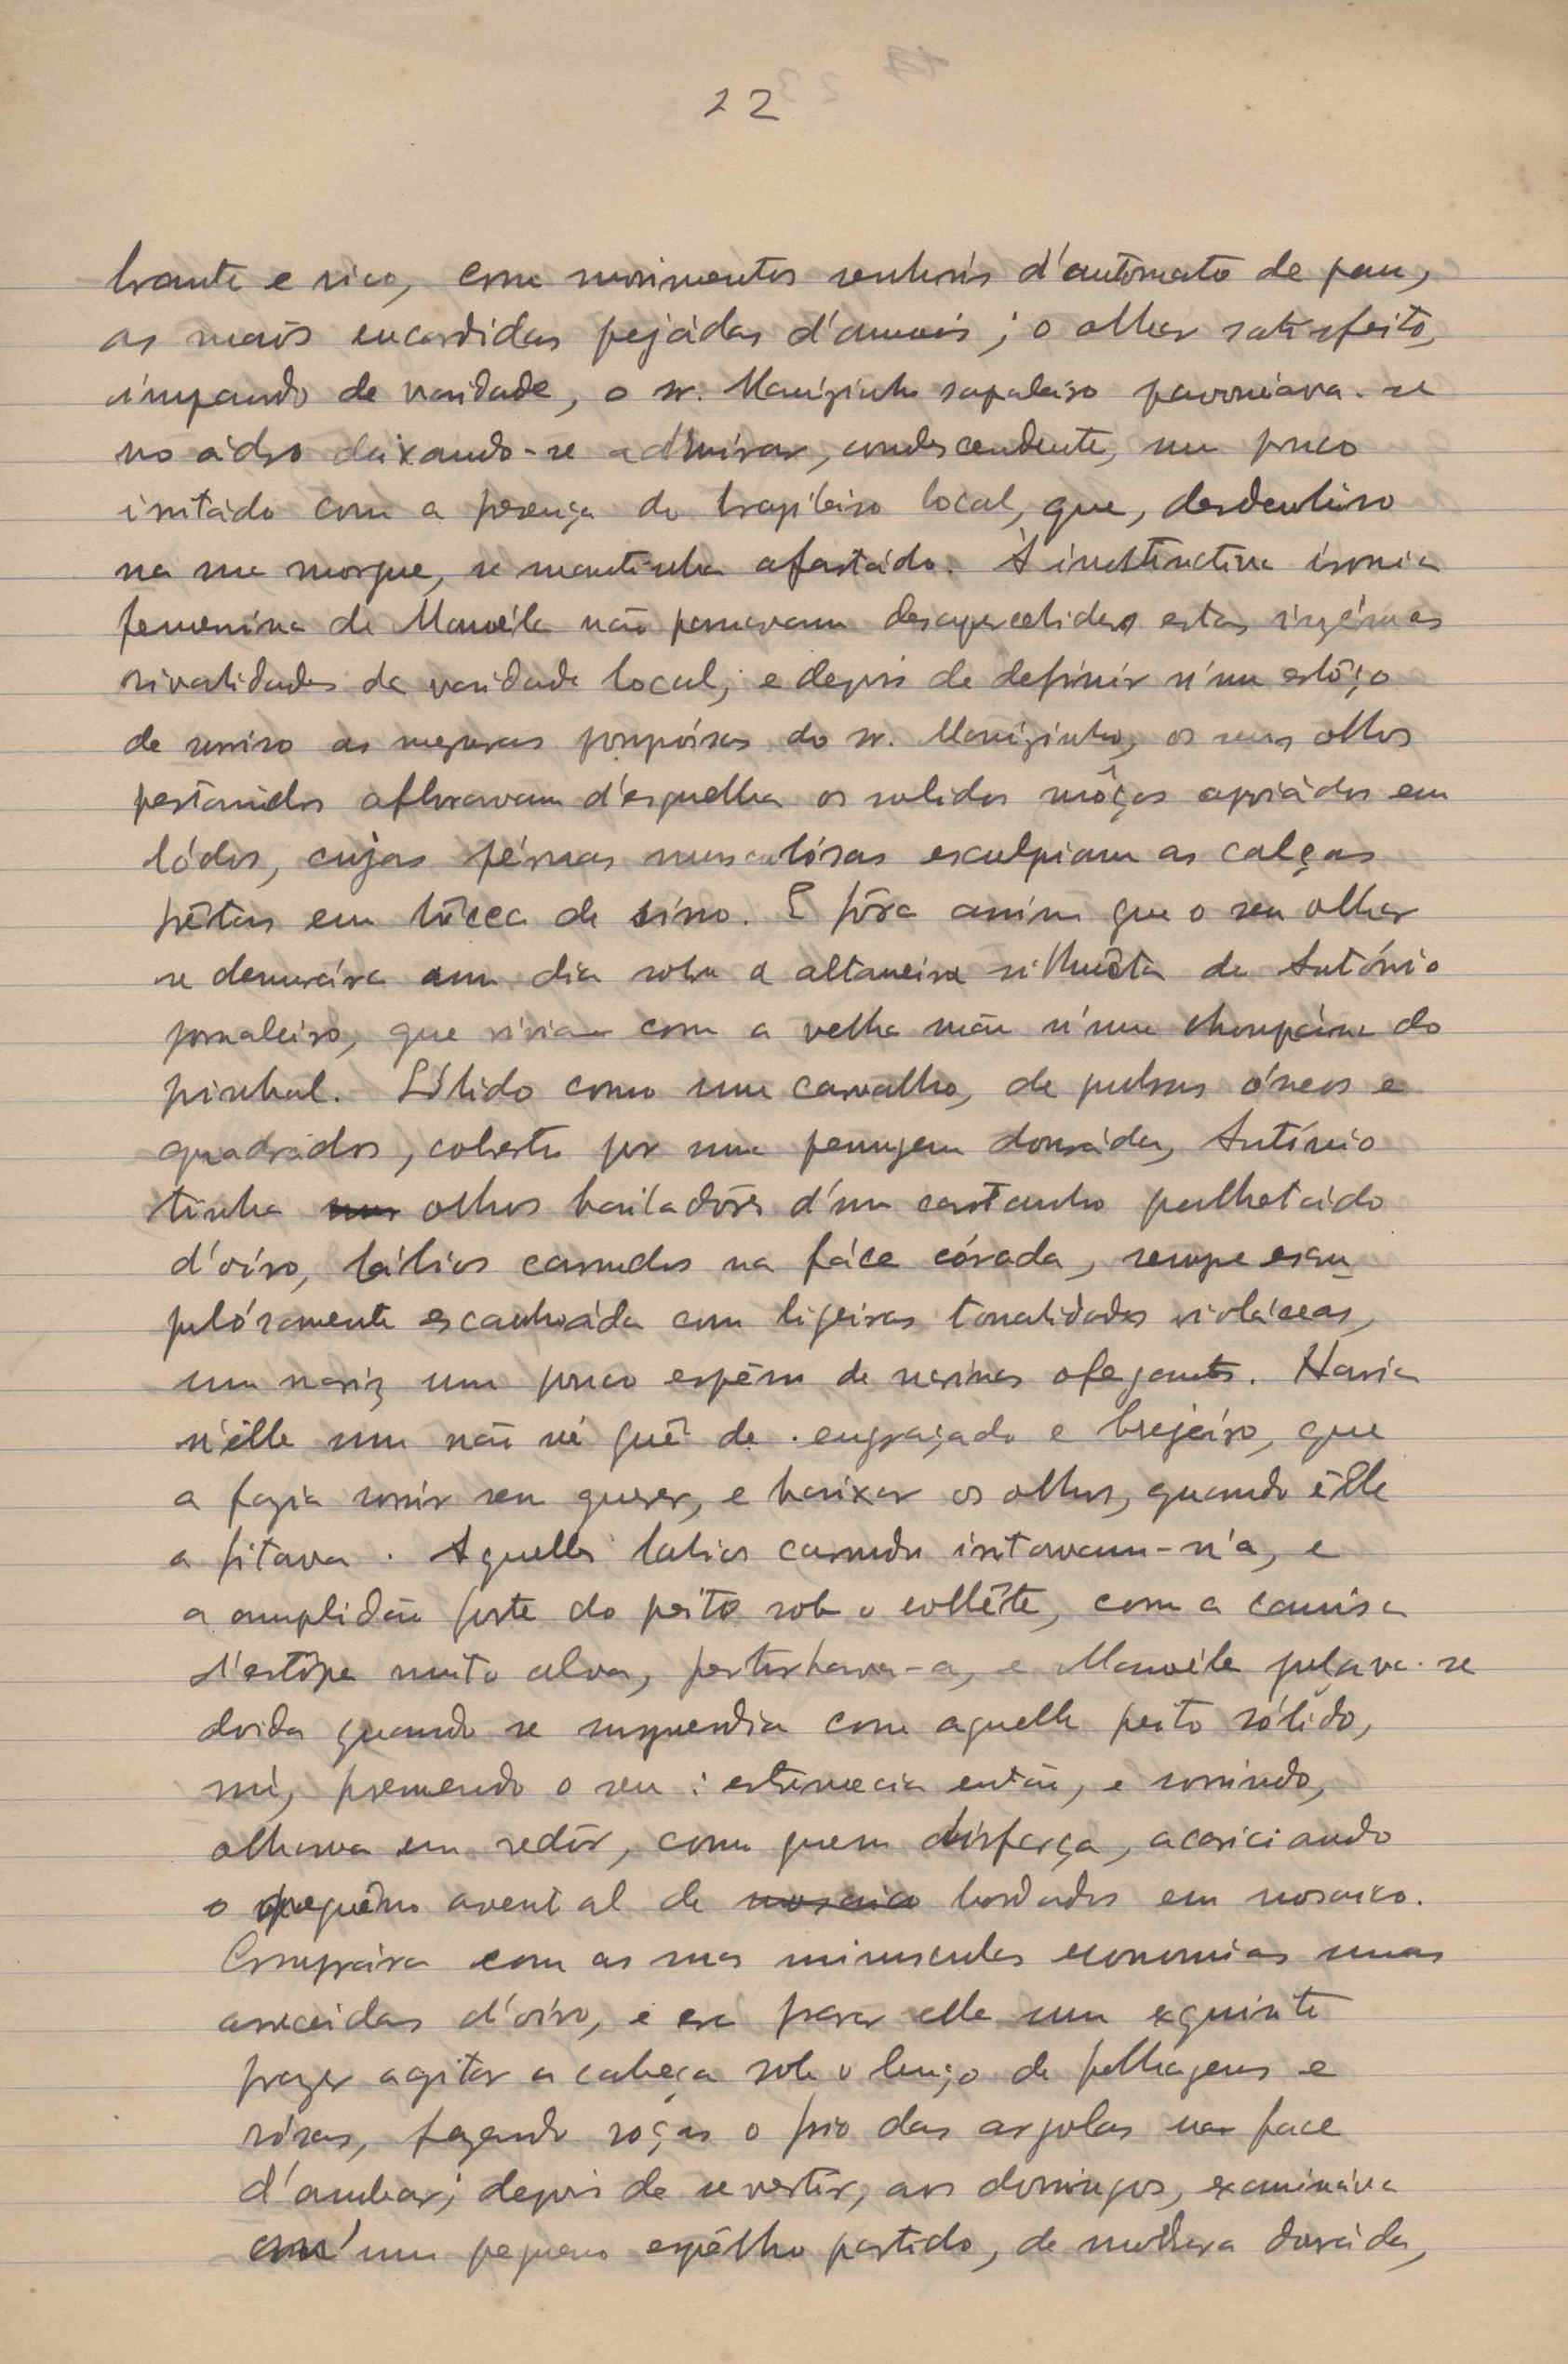 22
brante e rico, com movimentos senhoris d'automato de pau,
as mãos encardidas pejádas d'anneis; o olhar satisfeito,
impando de vaidade, o sr. Luizinho sapateiro pavoniava-se
no ádro deixando-se admirar, condescendente, um pouco
irritádo com a presença do brazileiro local, que, desdenhoso
na sua morgue, se mantinha afastádo. Á instinctiva ironia
femenina de Manoéla não passavam desapercebidas estas ingénuas
rivalidades da vaidade local; e depois de definir n'um esbôço
de sorriso as mesuras pomposas do sr. os seus olhos
pestanudos afloravam d'esguelha os solidos môços apoiádos em
lódos, cujas pérnas musculósas esculpiam as calças
prêtas em bôcca de sino. E fôra assim que o seu olhar
se demorára um dia sobre a altaneira silhuêta de António
jornaleiro, que vivia com a velha mãe n'uma choupâna do
pinhal. Sólido como um carvalho, de pulsos ósseos e
quadrádos, coberto por uma penugem douráda, António
tinha olhos bailadôres d'um castanho palhetádo
d'oiro, lábios carnudos na fáce córada, sempre escru-
pulósamente escanhoáda com ligeiras tonalidades violáceas,
um nariz um pouco espêsso de narinas ofegantes. Havia
n'êlle um não sei quê de engraçado e brejeiro, que
a fazia sorrir sem querer, e baixar os olhos, quando êlle
a fitava. Aquelles labios carnudos irritavam-n'a, e
a amplidão forte do peito sob o collête, com a camisa
d'estôpa muito alva, perturbava-a, e Manoéla julgava-se
doida quando se surprendia com aquelle peito sólido,
nú, premendo o seu: estremecia então, e sorrindo,
olhava em redôr, como quem disfarça, acariciando
o pequêno avental de mosaico bordados em mosaico.
Compraira com as suas minusculas economias umas
arrecádas d'oiro, e era para ella um exquisito
prazer agitar a cabeça sob o lenço de folhagens e
rósas, fazendo roçar o frio das argolas na face
d'ambar; depois de se vestir, aos domingos, examináva
n'um pequeno espêlho partido, de moldura douráda,